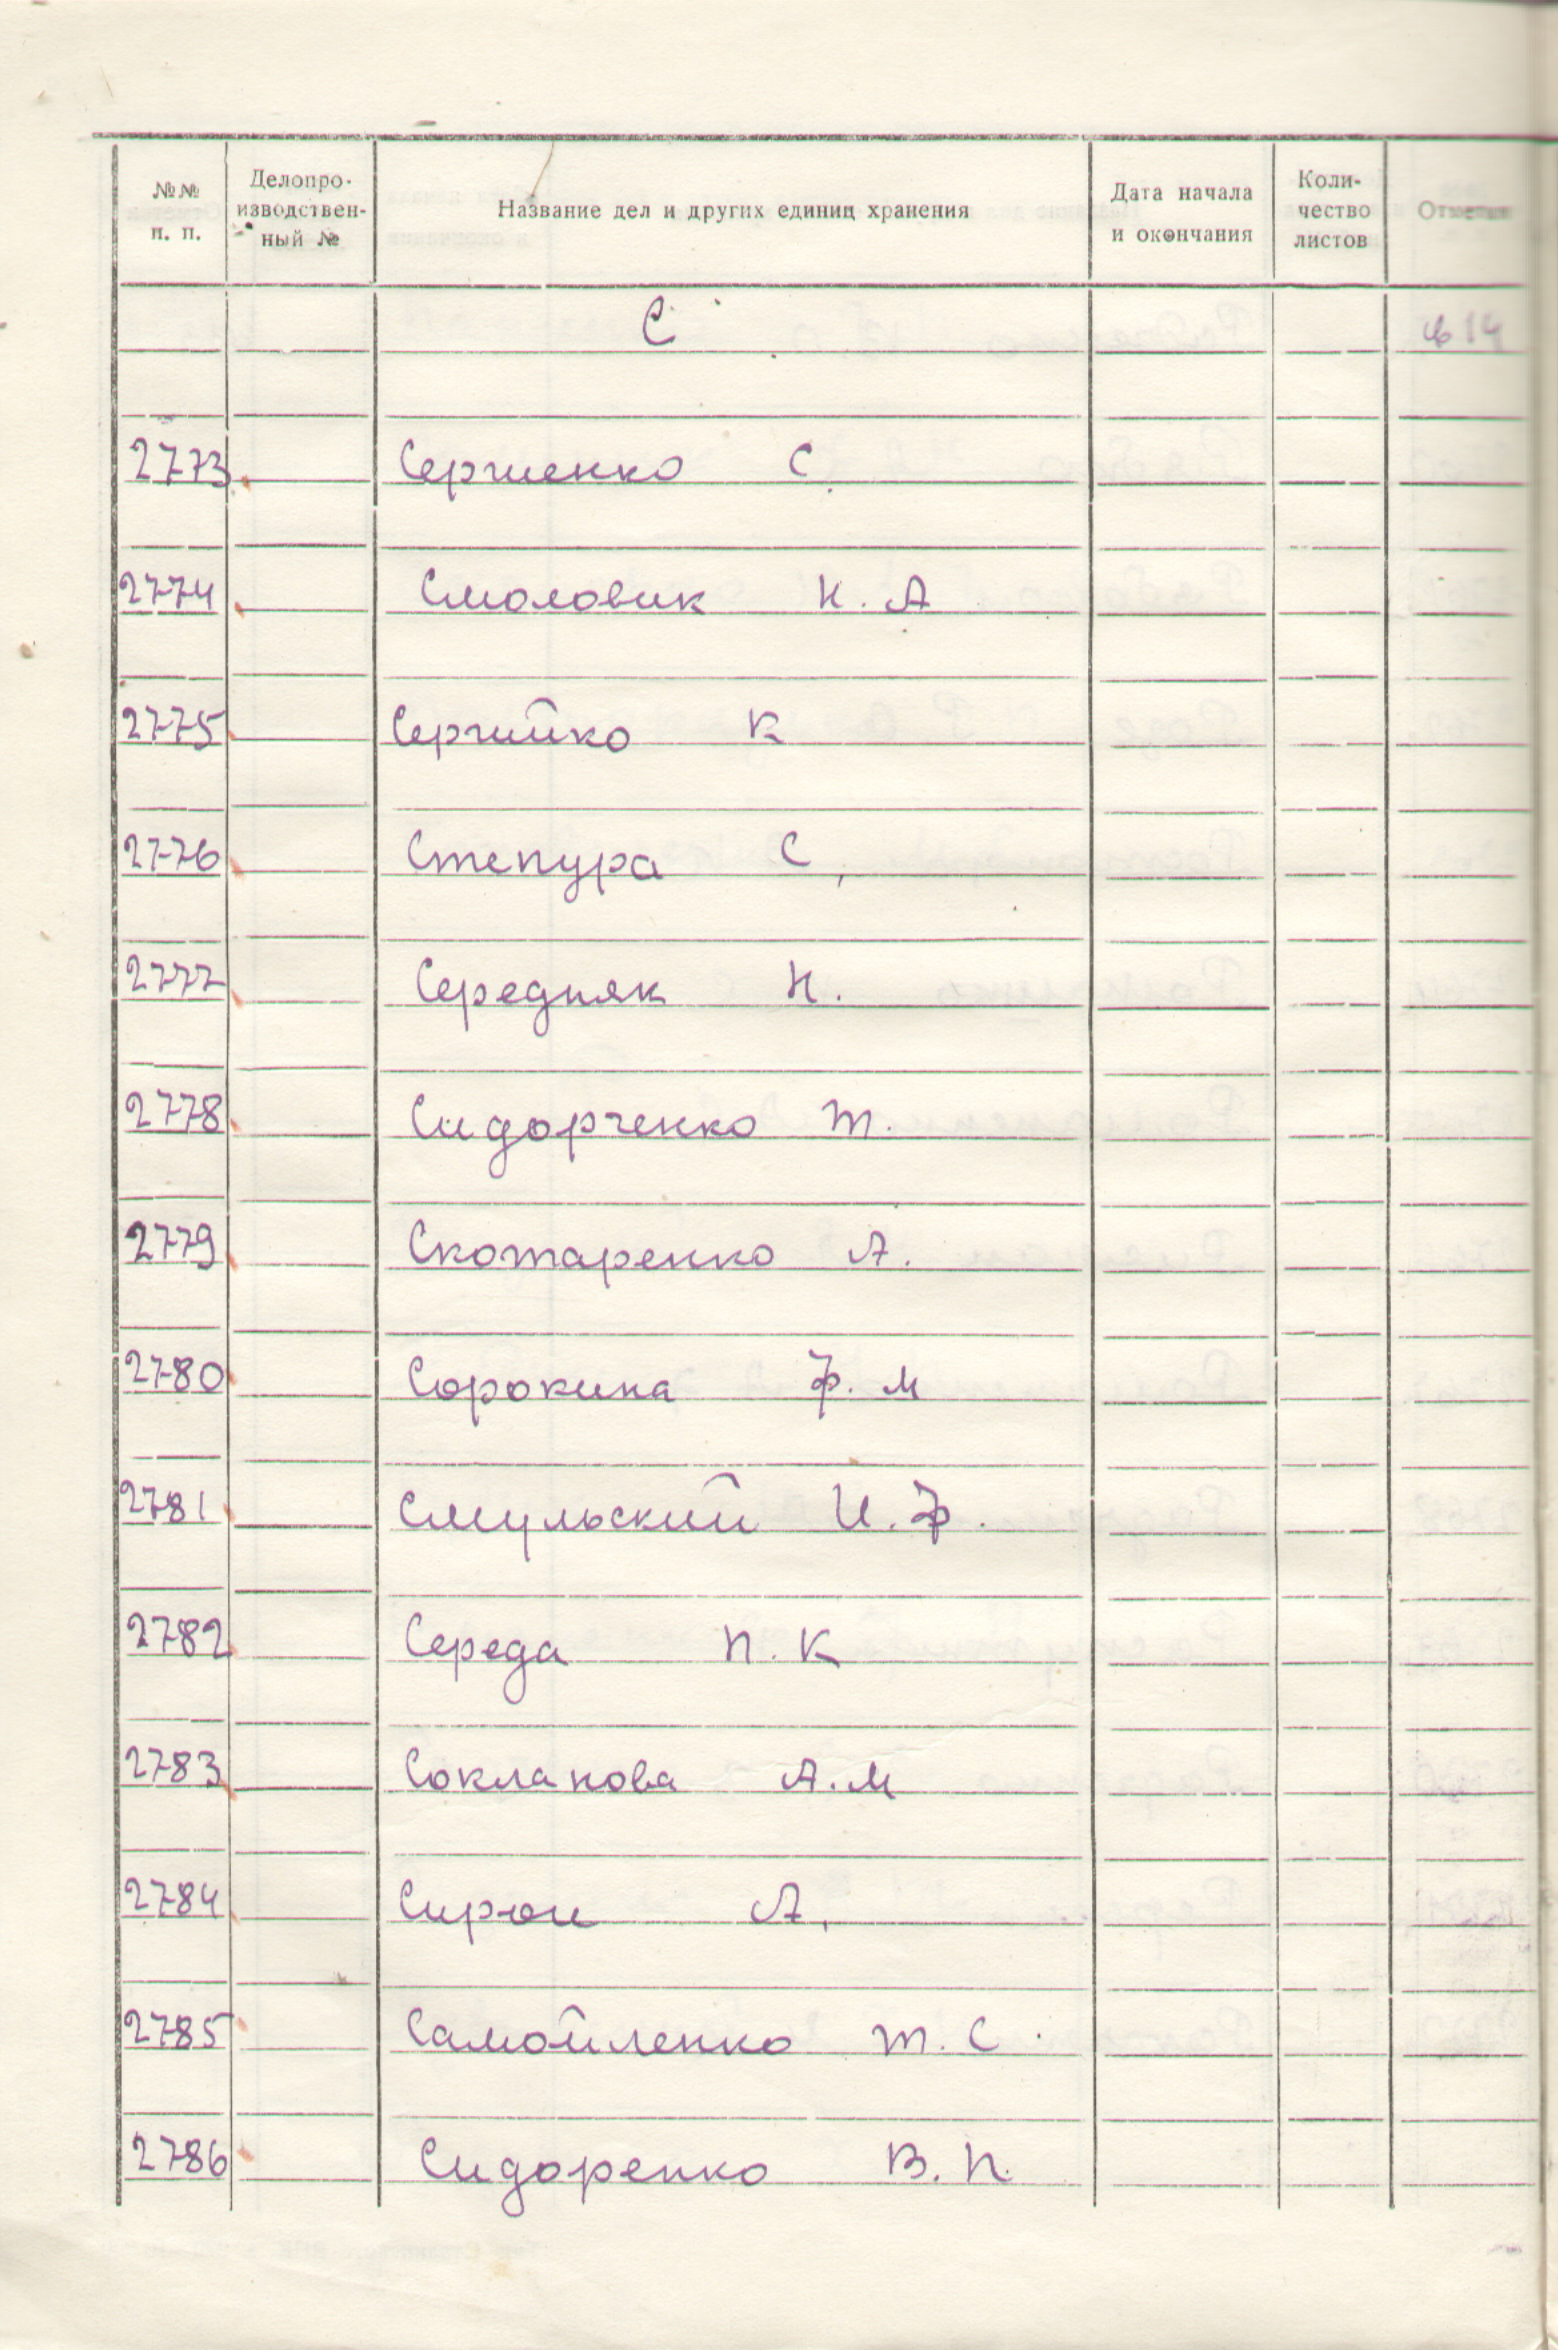 №№ п. п. Делопроизводственный № Название дел и других единиц хранения Дата начала и окончания Количество листов Отметки
С
2773 Сергиенко С.
2774 Смоловик Н. А
2775 Сергийко К
2776 Степура С.
2777 Середняк Н.
2778 Сидорченко Т.
2779 Скотаренко А.
2780 Сорокина Ф. М
2781 Смульский И. Ф.
2782 Середа П. К
2783 Сокланова А. М
2784 А.
2785 Самойленко Т. С.
2786 Сидоренко В. П.